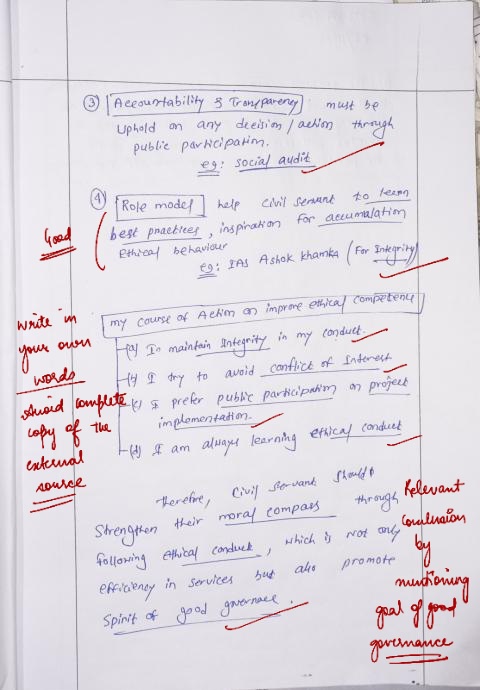 ③ Accountability & Transparency must be
uphold on any decision/action through
public participation.
eg: social audit
④ Role model help civil servant to learn
best practices, inspiration for accumalation
Ethical behaviour
eg: IAS Ashok khamka (For Integrity)
Good
my course of Action on improve ethical competence
(a) In maintain Integrity in my conduct.
(b) I try to avoid conflict of Interest
(c) I prefer public participation on project
implementation.
(d) I am always learning ethical conduct
write in
your own
words
Avoid complete
copy of the
external
source
Therefore, civil servant should
strengthen their moral compass through
following ethical conduct, which is not only
efficiency in services but also promote
spirit of good governace.
Relevant
conclusion
by
mentioning
goal of good
governance